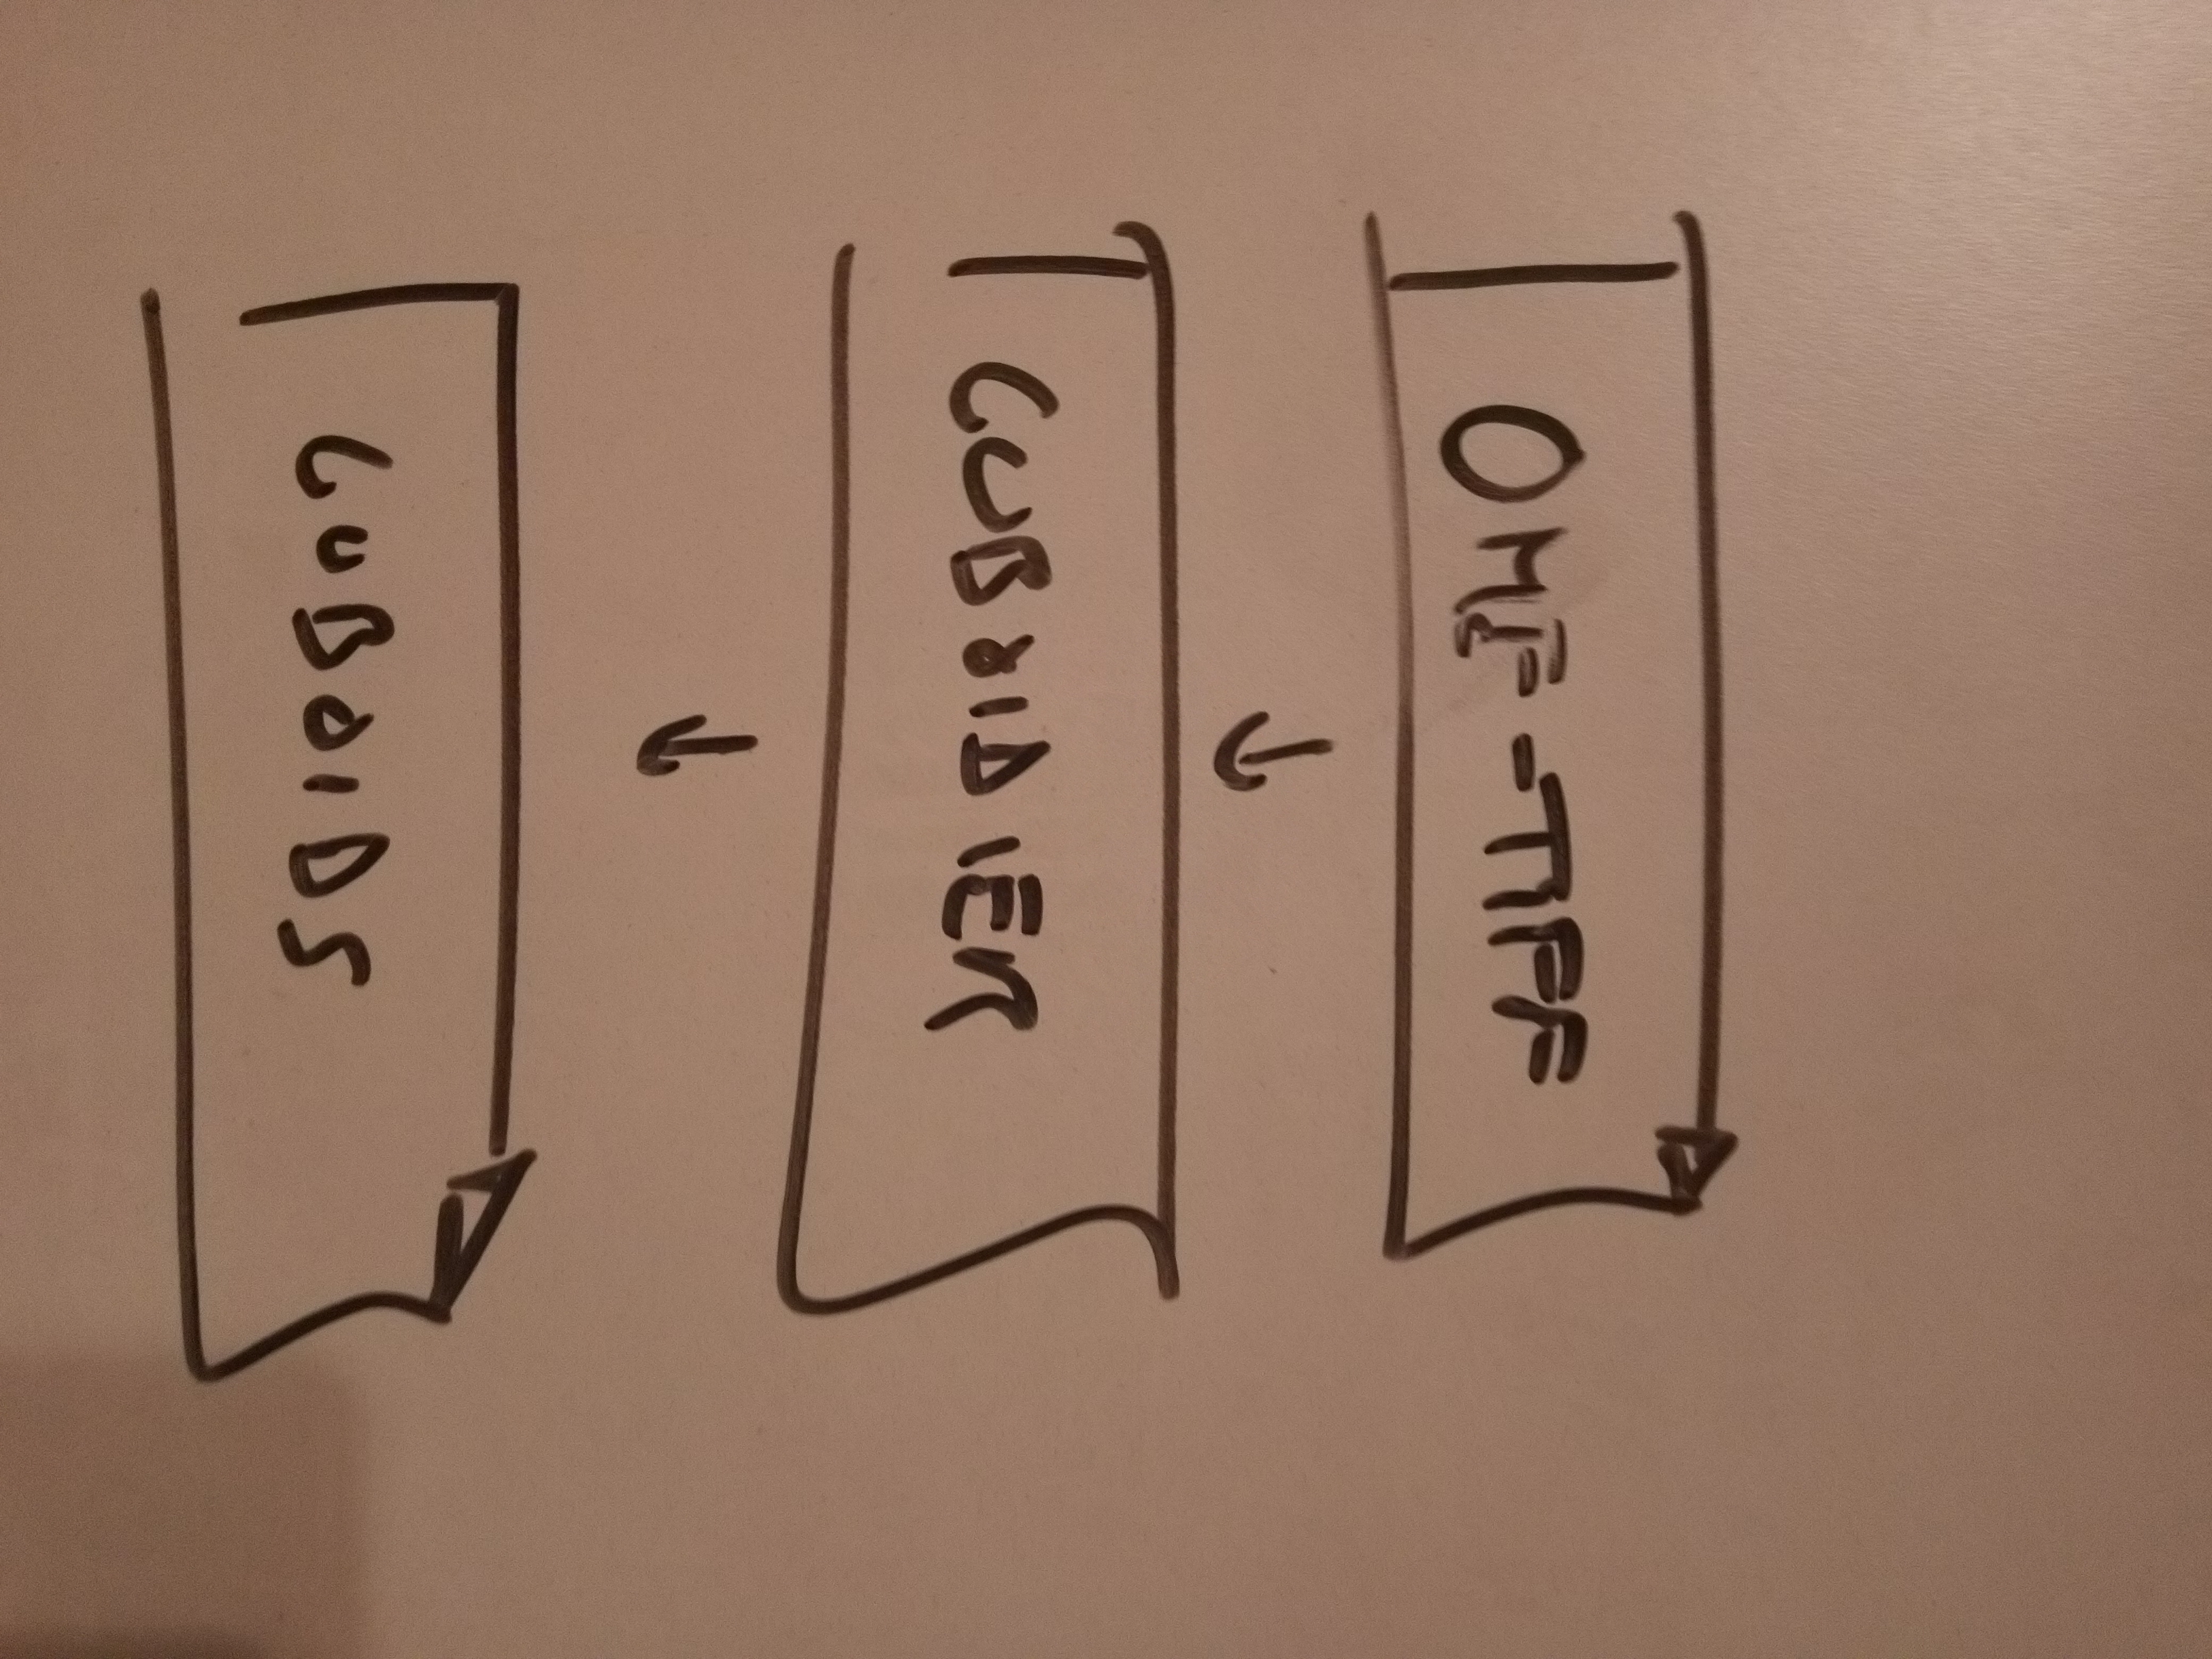 OME-TIFF
CUBOIDIER
CUBOIDS